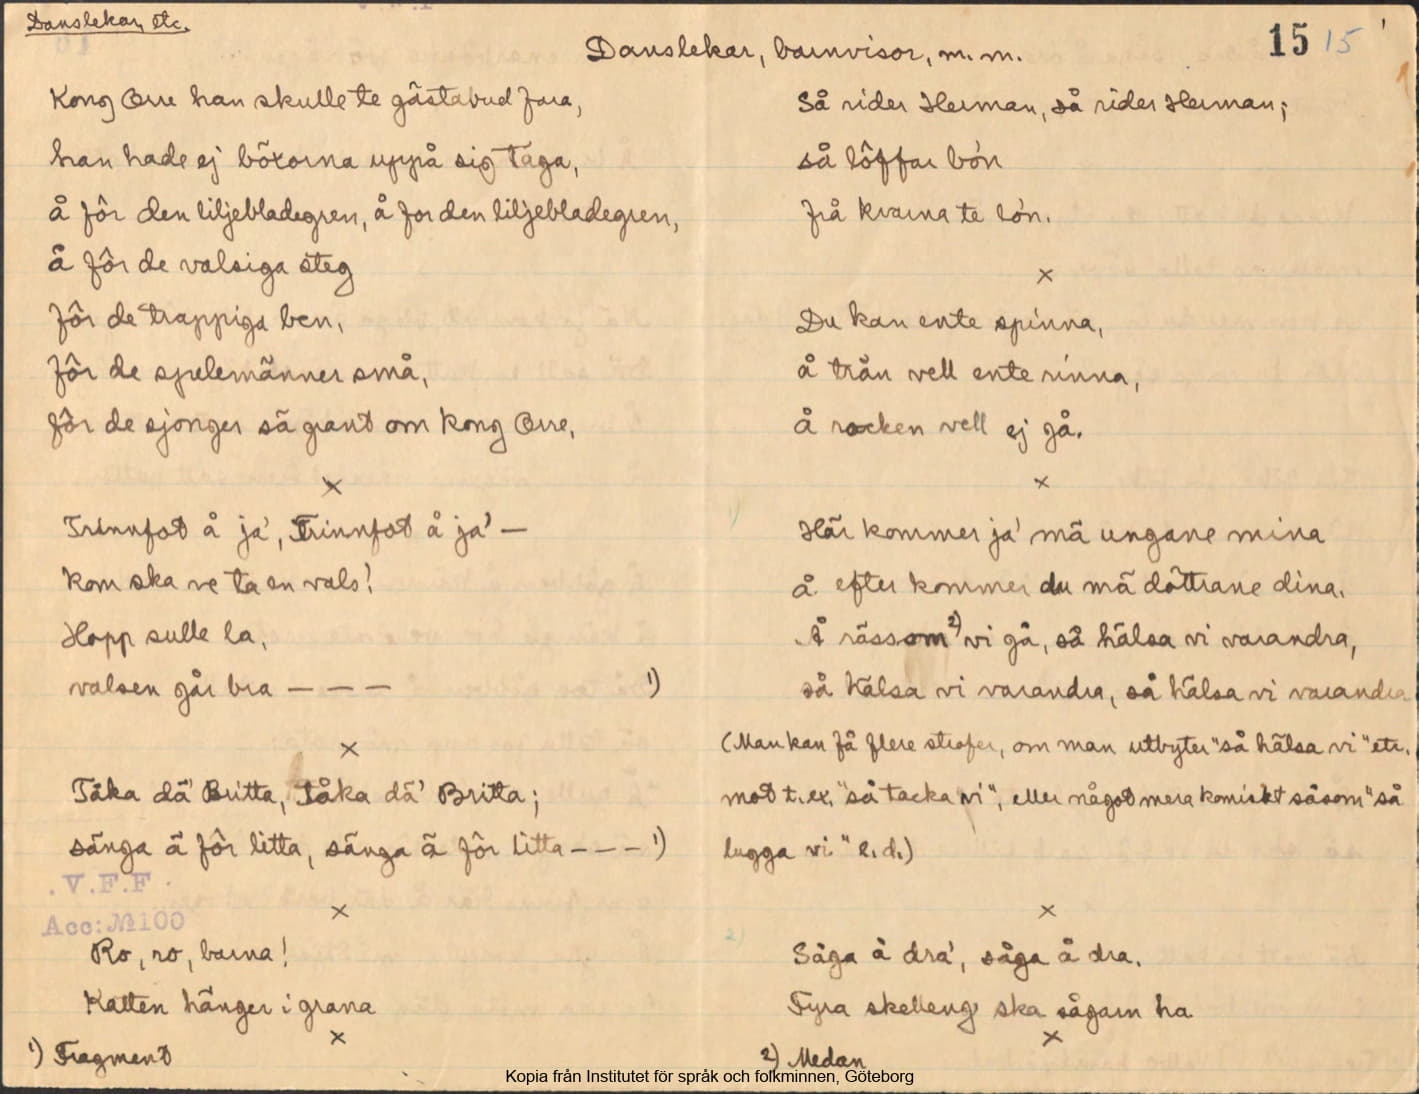 Danslekar, etc.
15 15
Danslekar, barnvisor, m. m.
Kong Orre han skulle te gästabud fara,
han hade ej böxorna uppå sig taga,
å fôr den liljebladegren, å for den liljebladegren,
å fôr de valsiga steg
fôr de trappiga ben,
fôr de spelemänner små,
fôr de sjonger sä grant om Kong Orre,
×
Trinnfot å ja', Trinnfot å ja' —
kom ska ve ta en vals!
Hopp sulle la,
valsen går bra — — — 1)
×
Tåka dä' Britta, tåka dä' Britta;
sänga ä fôr litta, sänga ä fôr litta — — — 1)
. V.F.F .
Acc: № 100
×
Ro, ro, barna!
Katten hänger i grana
×
1) Fragment
Så rider Herman, så rider Herman;
så lôffar bó'n
frå kvarna te ló'n.
×
Du kan ente spinna,
å trån vell ente rinna,
å rocken vell ej gå.
×
Här kommer ja' mä ungane mina
å efter kommer du mä döttrane dina.
Å rässom 2) vi gå, så hälsa vi varandra,
så hälsa vi varandra, så hälsa vi varandra
(Man kan få flere strofer, om man utbyter "så hälsa vi" etc.
mot t. ex. "så tacka vi", eller något mera komiskt såsom "så
lugga vi" e. d.)
×
Såga å dra', såga å dra.
Fyra skelleng ska sågarn ha
×
2) Medan
Kopia från Institutet för språk och folkminnen, Göteborg